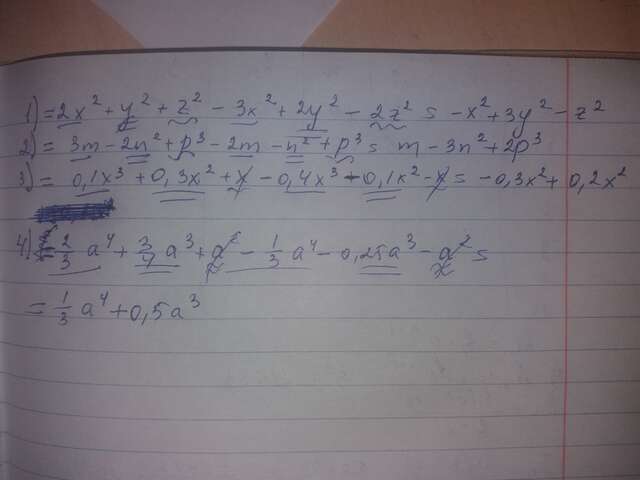 1) = 2x² + y² + z² - 3x² + 2y² - 2z² = -x² + 3y² - z²
2) = 3m - 2n² + p³ - 2m - n² + p³ = m - 3n² + 2p³
3) = 0,1x³ + 0,3x² + x - 0,4x³ - 0,1x² - x = -0,3x² + 0,2x²
4) = 2/3 a⁴ + 3/4 a³ + a² - 1/3 a⁴ - 0,25a³ - a² =
= 1/3 a⁴ + 0,5a³